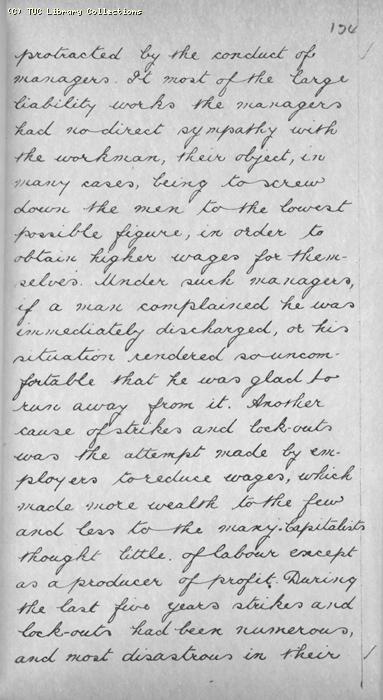 (C) TUC Library Collections
protracted by the conduct of
managers. It most of the large
liability works the managers
had no direct sympathy with
the workman, their object, in
many cases, being to screw
down the men to the lowest
possible figure, in order to
obtain higher wages for them-
selves. Under such managers,
if a man complained he was
immediately discharged, or his
situation rendered so uncom-
fortable that he was glad to
run away from it. Another
cause of strikes and lock-outs
was the attempt made by em-
ployers to reduce wages, which
made more wealth to the few
and less to the many. Capitalists
thought little. of labour except
as a producer of profit. During
the last five years strikes and
lock-outs had been numerous,
and most disastrous in their